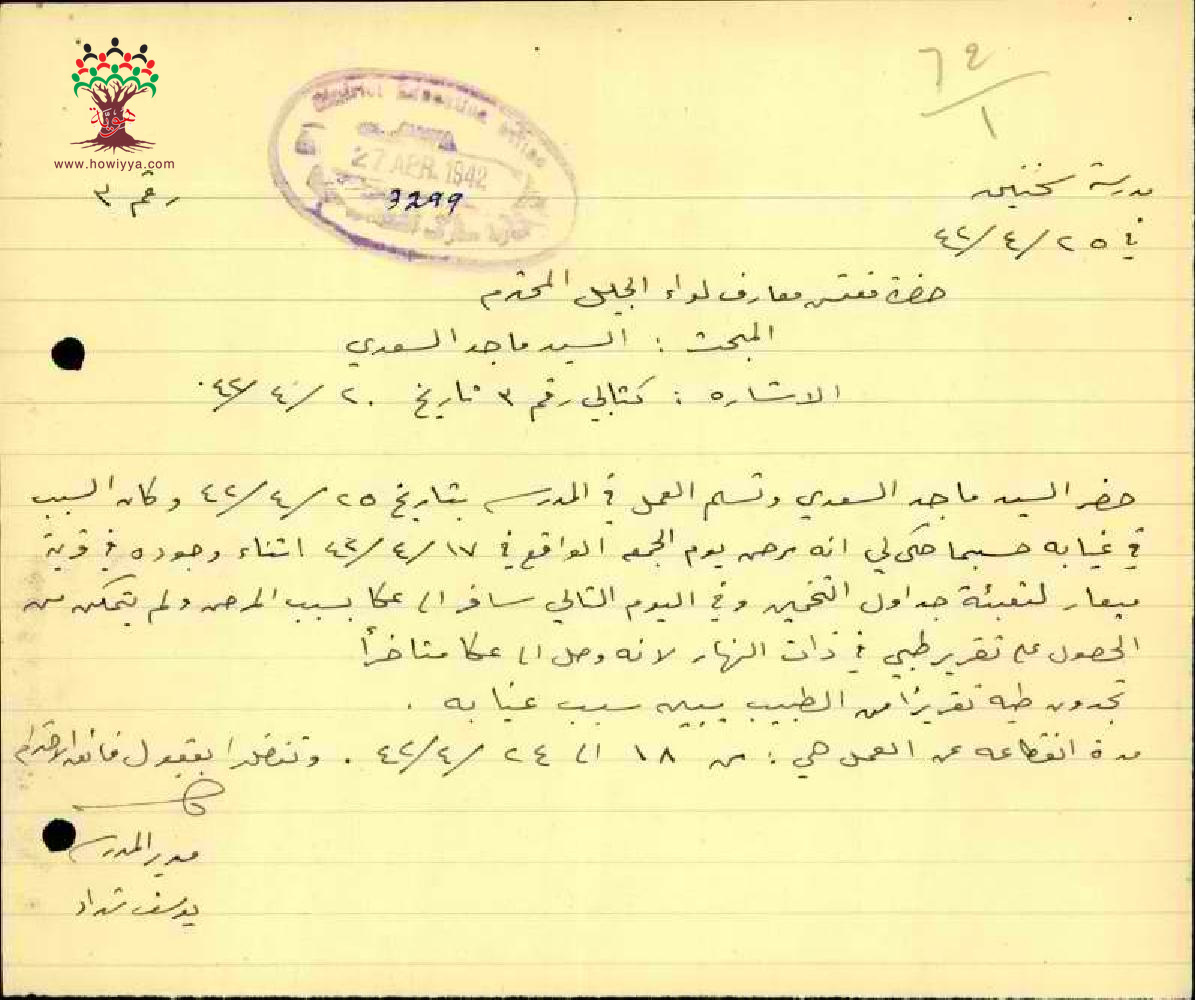 هوية
www.howiyya.com
٦٩/١
District Education Office
27 APR. 1942
3299
رقم ٣
مدرسة سخنين
في ٢٥/٤/٤٢
حضرة مفتش معارف لواء الجليل المحترم
المبحث : السيد ماجد السعدي
الاشاره : كتابي رقم ٣ تاريخ ٢٠/٤/٤٢.
حضر السيد ماجد السعدي وتسلم العمل في المدرسه بتاريخ ٢٥/٤/٤٢ وكان السبب
في غيابه حسبما حكى لي انه مرض يوم الجمعه الواقع في ١٧/٤/٤٢ اثناء وجوده في قرية
ميعار لتعبئة جداول التخمين وفي اليوم التالي سافر الى عكا بسبب المرض ولم يتمكن من
الحصول على تقرير طبي في ذات النهار لانه وصل الى عكا متاخراً
تجدون طيه تقريرًا من الطبيب يبين سبب غيابه .
مدة انقطاعه عن العمل هي : من ١٨ الى ٢٤/٤/٤٢ . وتفضلوا بقبول فائق الاحترام
مدير المدرسه
يوسف شداد